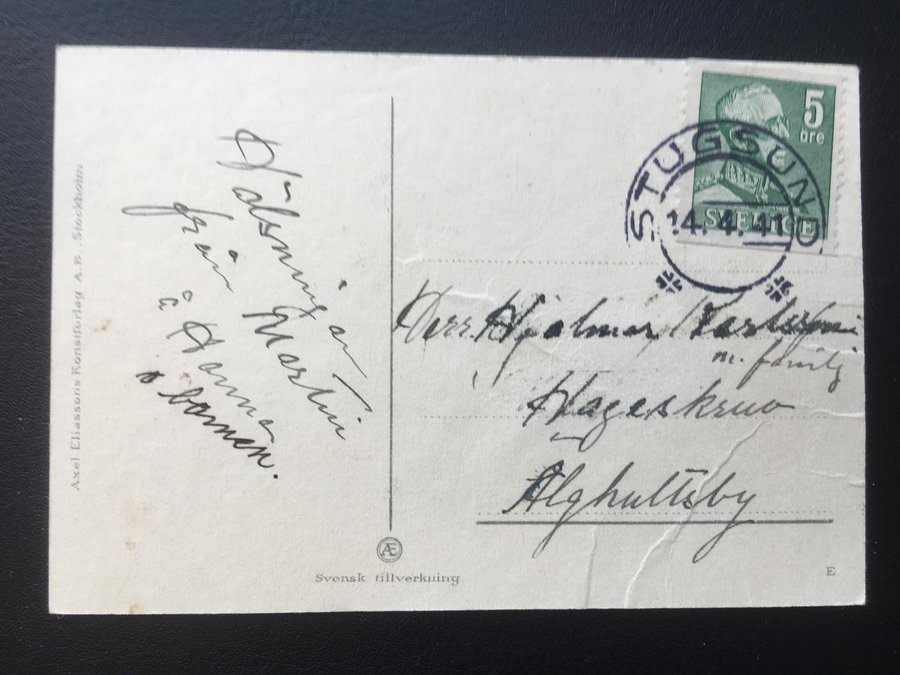 Axel Eliassons Konstförlag A. B. Stockholm
Hälsning av
från Martin
å Hanna
o barnen.
5
öre
SVERIGE
STUGSUND
14. 4. 41
Herr. Hjalmar Karlsson
m. familj
Hageskruv
Älghultsby
Æ
Svensk tillverkning
E